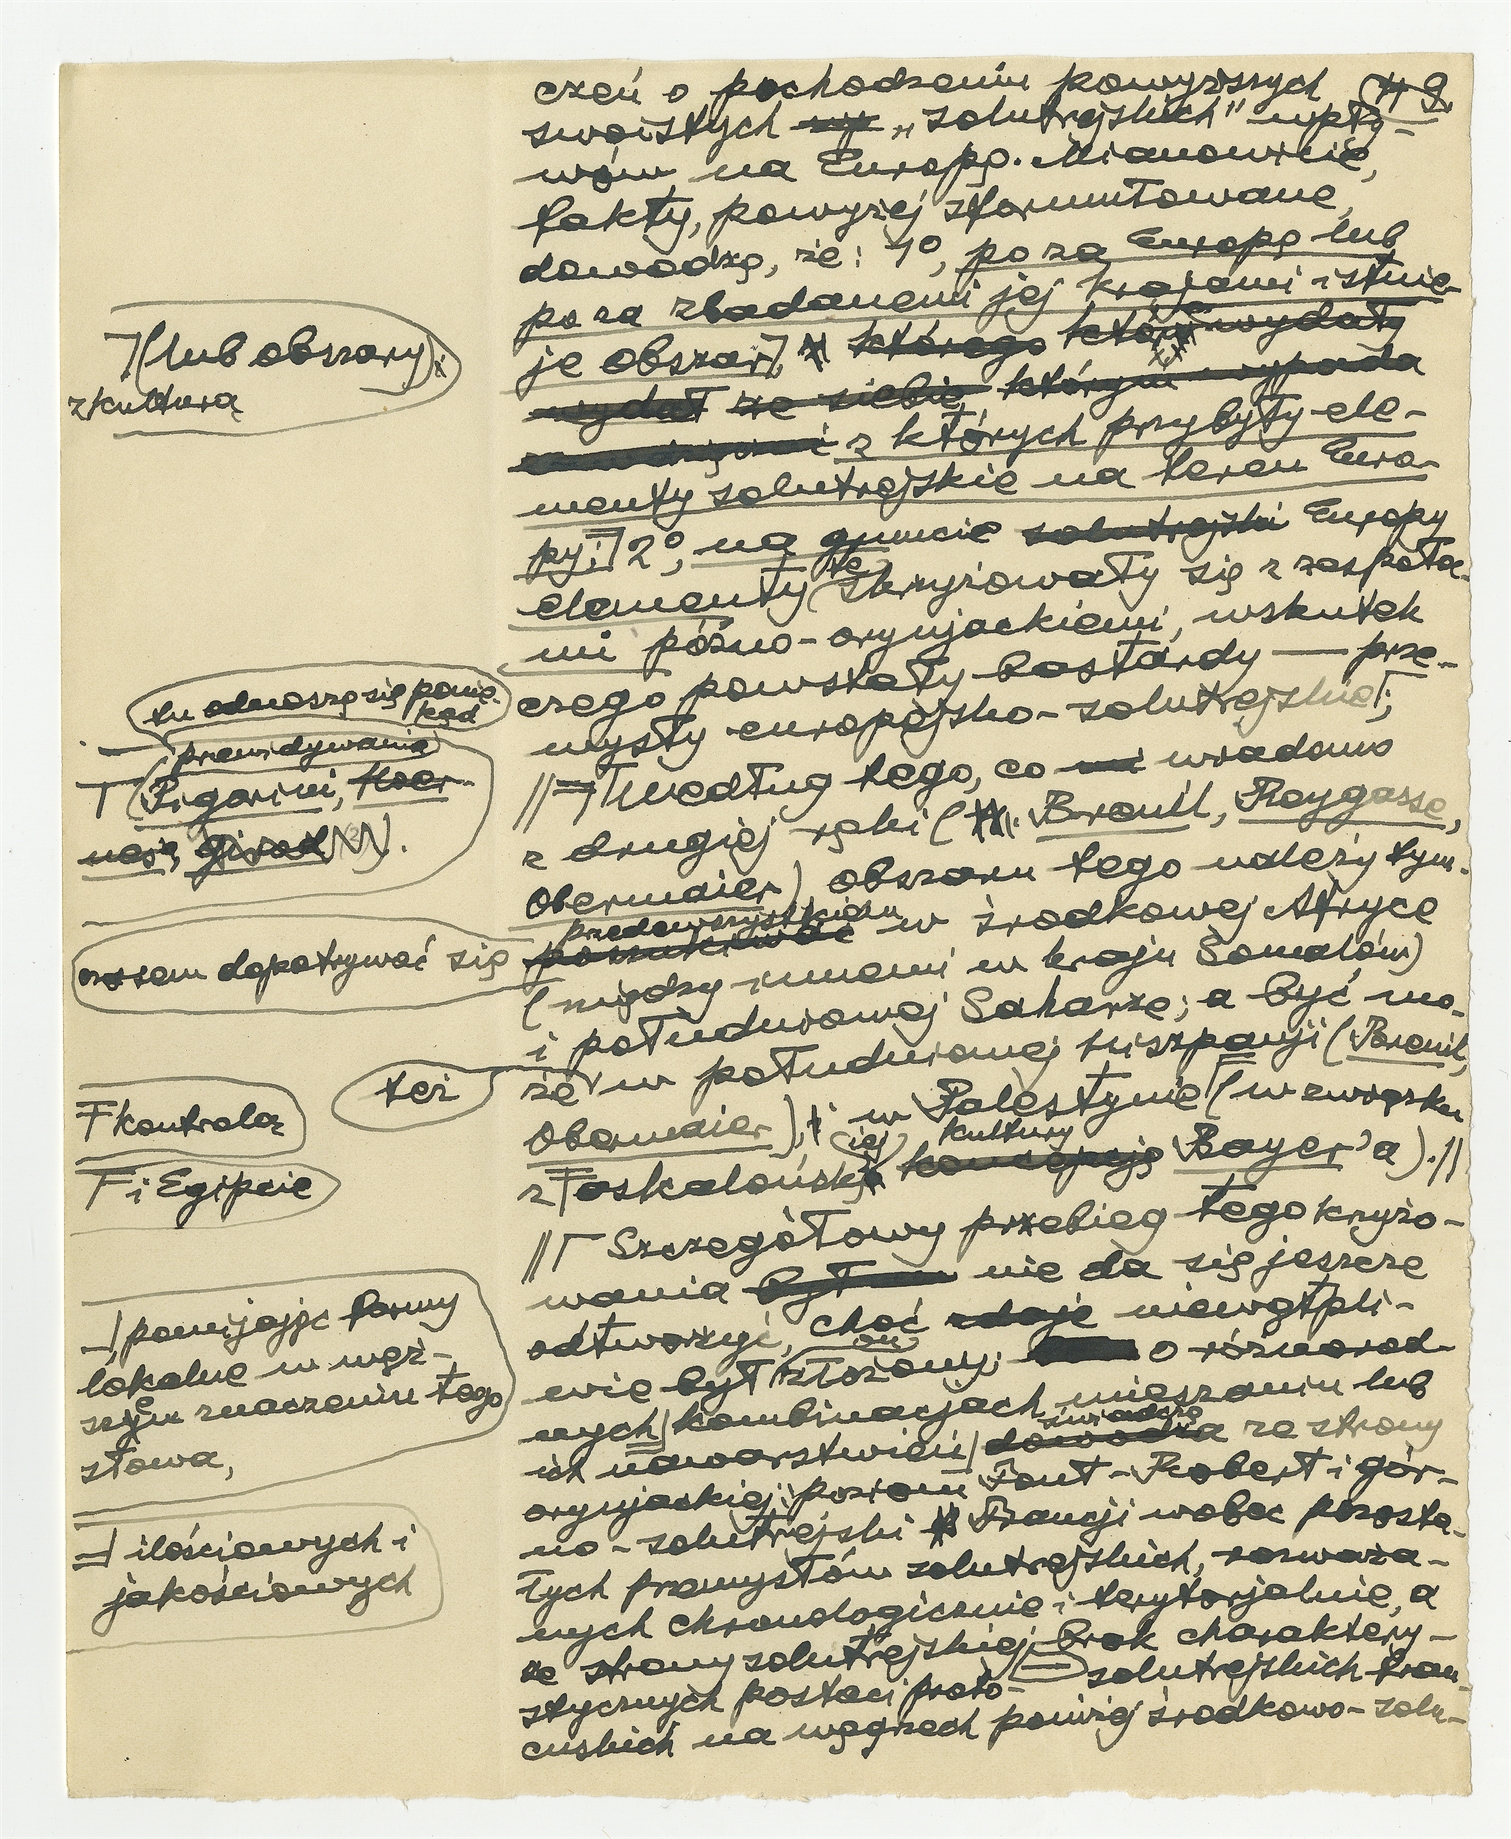 czeń o pochodzeniu powyższych
9.
swoistych „solutrejskich" wpły-
wów na Europę. Mianowicie,
fakty, powyżej sformułowane,
dowodzą, że: 1°, poza Europą lub
poza zbadanemi jej krajami istnie-
je obszar, którego
wydał ze siebie którym wypada
z których przybyły ele-
menty solutrejskie na teren Euro-
py i 2°, na gruncie solutrejski Europy
elementy te skrzyżowały się z zespoła-
mi późno-oryniackiemi, wskutek
czego powstały bastardy — prze-
mysły europejsko-solutrejskie;
Według tego, co wiadomo
z drugiej ręki (Breuil, Reygasse,
Obermaier) obszaru tego należy tym-
przedewszystkiem
poszukiwać w środkowej Afryce
(między innemi w kraju Somalów)
i południowej Saharze; a być mo-
że w południowej Hiszpanji (Breuil,
Obermaier), i w Palestynie (w związku
kultury
z askalońskiej koncepcję Bayer'a).
Szczegółowy przebieg tego krzyżo-
wania nie da się jeszcze
odtworzyć, choć zdaje niewątpli-
wie był on złożony; o różnorod-
nych kombinacjach mieszaniu lub
świadczą
ich nawarstwieniu ze strony
oryniackiej: poziom Font-Robert i gór-
no-solutrejski Francji wobec pozosta-
łych przemysłów solutrejskich, rozważa-
nych chronologicznie i terytorjalnie, a
ze strony solutrejskiej brak charaktery-
stycznych postaci proto- solutrejskich fran-
cuskich na Węgrzech poniżej środkowo-solu-
(lub obszary)
z kulturą
tu odnoszę się ponie-
kąd
przewidywania
Pigorini,
czasem dopatrywać się
też
kontrolą
i Egipcie
pomijając formy
lokalne w węż-
szym znaczeniu tego
słowa,
ilościowych i
jakościowych